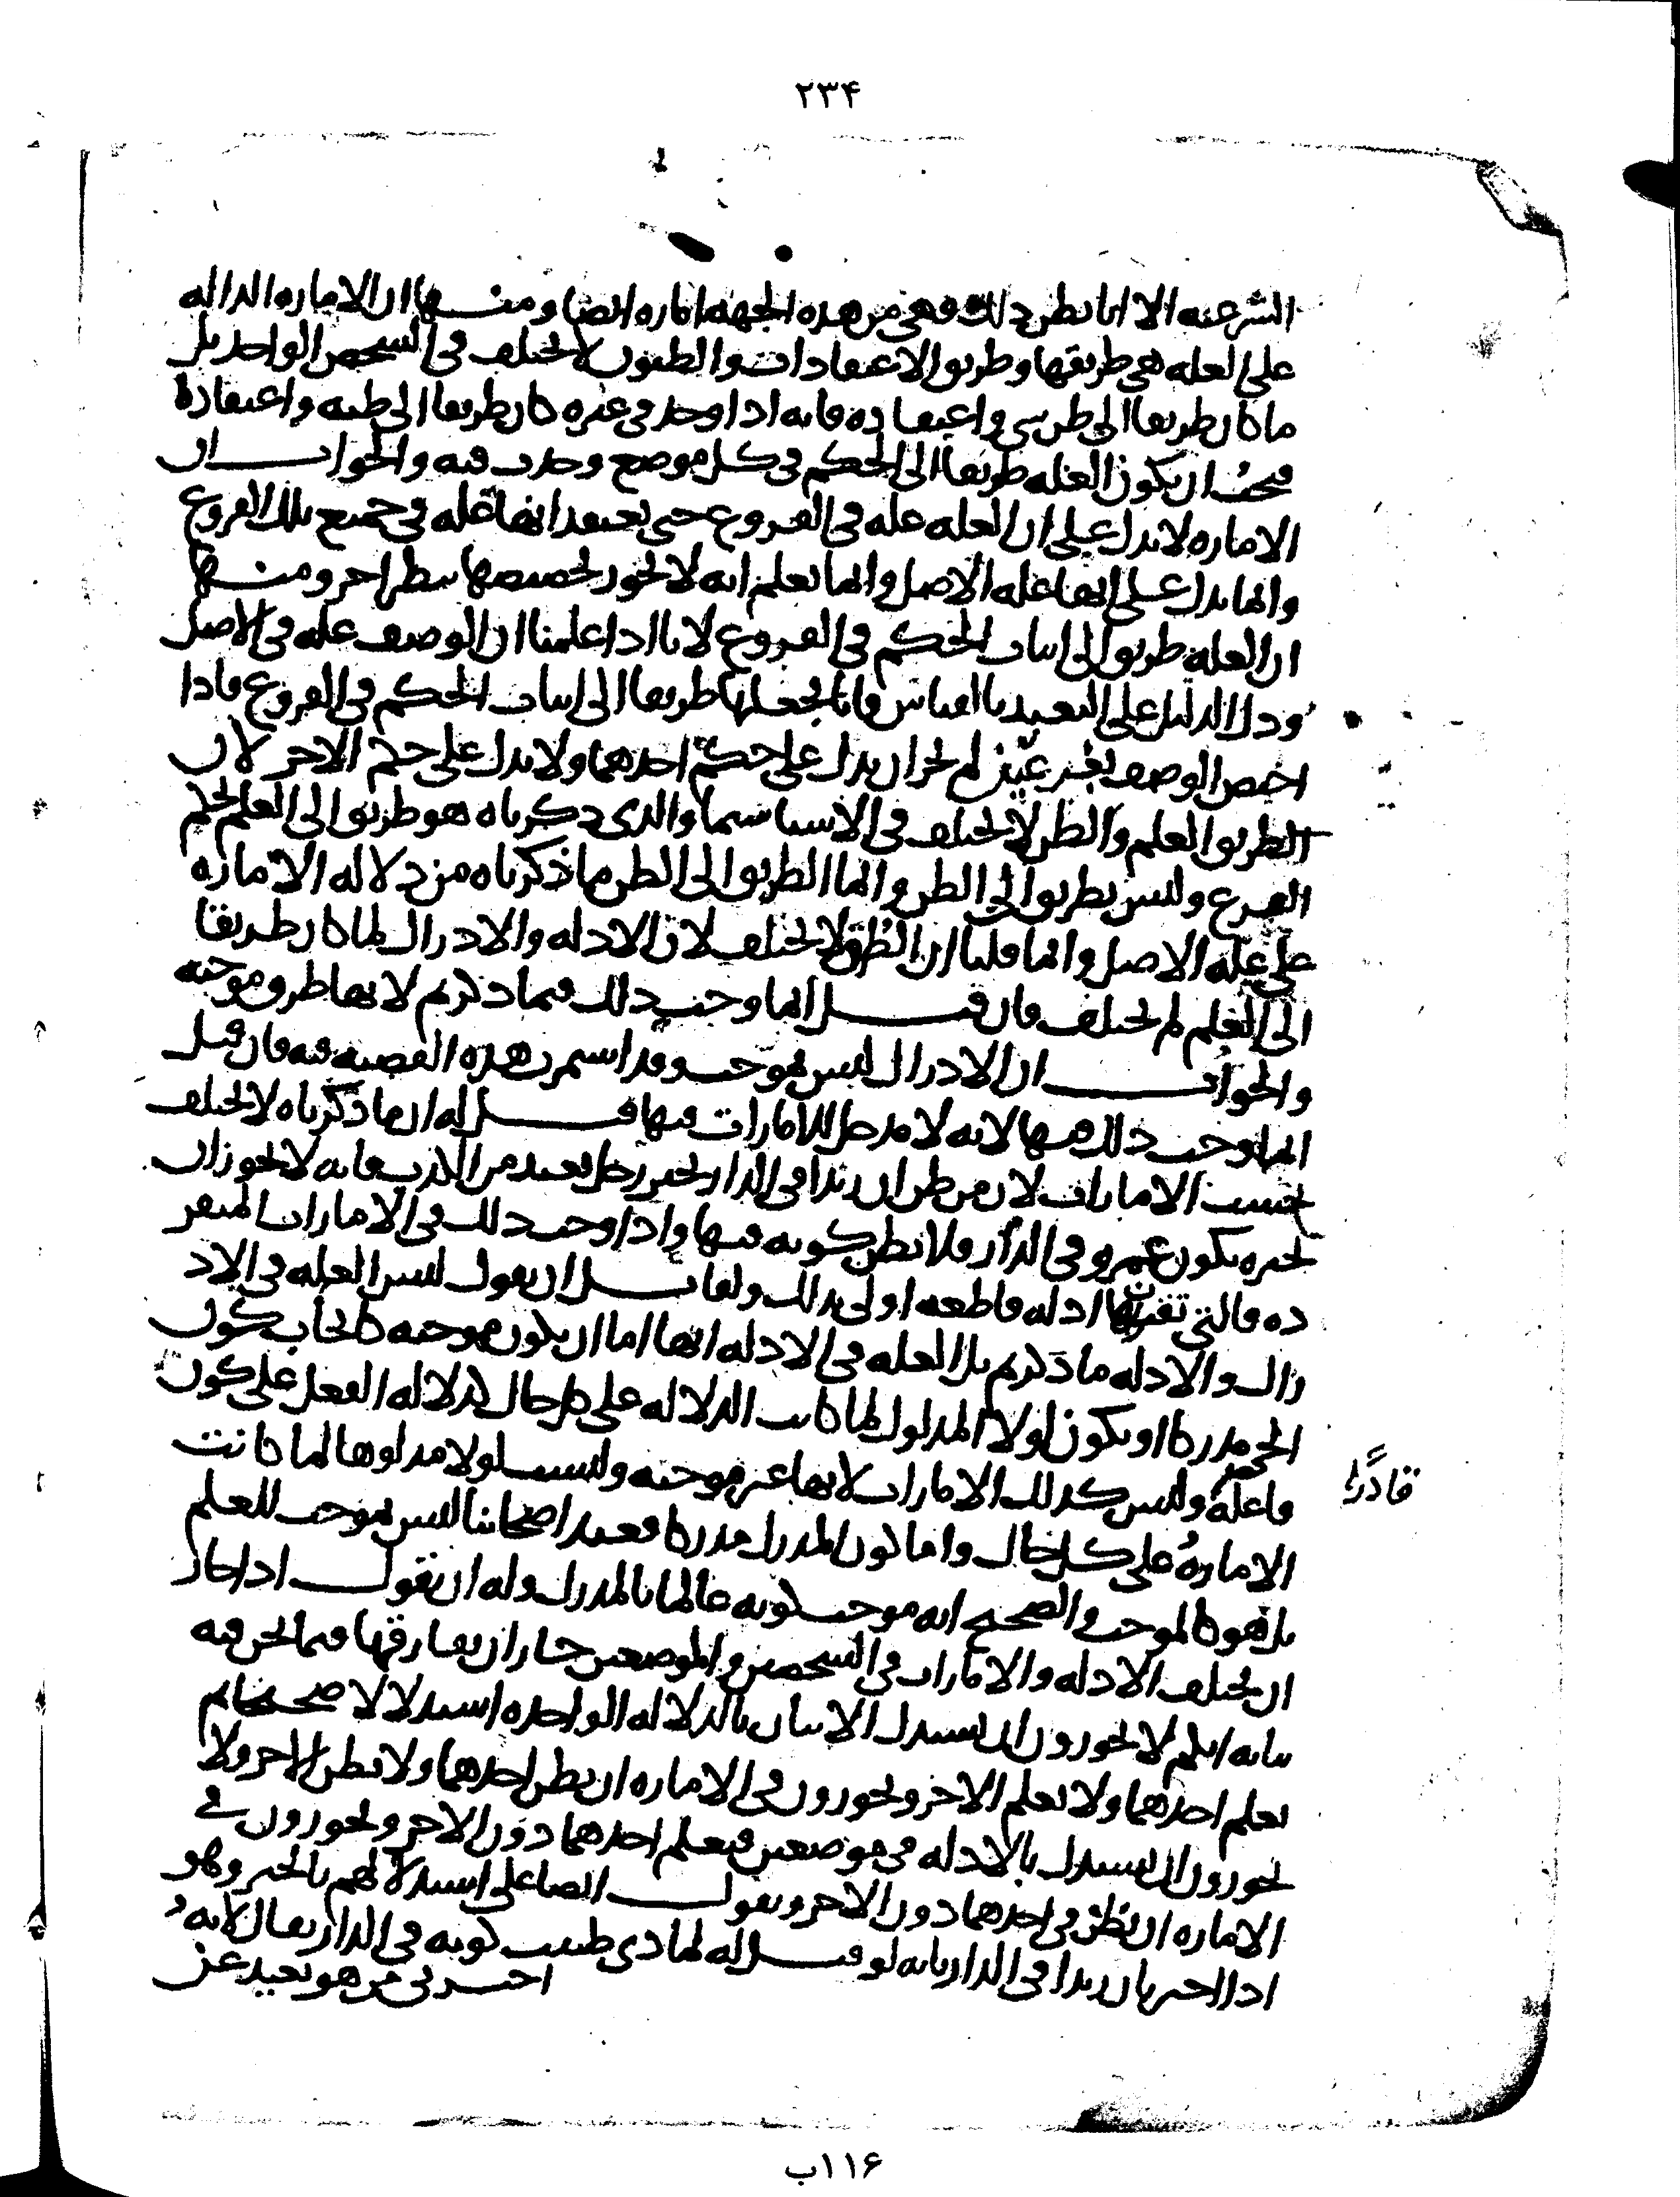 ٢٣۴
الشرعيه الا انا نظن ذلك فهي من هذه الجهه اماره ايضا ومنها ان الاماره الداله
على العله هي طريقها وطريق الاعتقادات والظنون لا يختلف في الشخص الواحد بل
ما كان طريقا الى ظن شي واعتقاده فانه اذا وجد في غيره كان طريقا الى ظنه واعتقاده
فيجب ان يكون العله طريقا الى الحكم في كل موضع وجدت فيه والجواب ان
الاماره لا تدل على ان العله عله في الفروع حتى نعتقد انها عله في جميع تلك الفروع
وانما تدل على انها عله الاصل وانما نعلم انه لا يجوز تخصيصها بنظر اخر ومنها
ان العله طريق الى اثبات الحكم في الفروع لانا اذا علمنا ان الوصف عله في الاصل
ودل الدليل على التعبد بالقياس فانا نجعلها طريقا الى اثبات الحكم في الفروع فاذا
اختص الوصف بفرعين لم يجز ان يدل على حكم احدهما ولا يدل على حكم الاخر لان
الطريق العلم والظن لا يختلف في الاشيا سيما والذي ذكرناه هو طريق الى العلم بحكم
الفرع وليس بطريق الى الظن وانما الطريق الى الظن ما ذكرناه من دلاله الاماره
على عله الاصل وانما قلنا ان الطرق لا يختلف لان الادله والادراك لما كان طريقا
الى العلم لم يختلف فان قيل انما وجب ذلك فيما ذكرتم لانها طرق موجبه
والجواب ان الادراك ليس بموجب وقد استمرت هذه القضيه فيه فان قيل
انما وجب ذلك فيها لانه لا مدخل للامارات فيها قيل له ان ما ذكرناه لا يختلف
بحسب الامارات لان من ظن ان زيدا في الدار بخبر رجل بعيد من الكذب فانه لا يجوز ان
يخبره بكون عمرو في الدار ولا يظن كونه فيها واذا وجب ذلك في الامارات المنفر
ده فالتي تقترن بها ادله قاطعه اولى بذلك ولقائل ان يقول ليس العله في الاد
راك والادله ما ذكرتم بل العله في الادله انها اما ان يكون موجبه كايجاب كون
الحي مدركا او يكون لولا المدلول لما كانت الدلاله على كل حال كدلاله الفعل على كون
فاعله وليس كذلك الامارات لانها غير موجبه وليست لولا مدلولها لما كانت
قادرًا
الاماره على كل حال واما كون المدرك مدركا فعند اصحابنا ليس بموجب للعلم
بل هو كالموجب والصحيح انه موجب لكونه عالما بالمدرك وله ان يقول اذا جاز
ان يختلف الادله والامارات في الشخصين والموضعين جاز ان يفارقها فيما نحن فيه
بيانه انكم لا تجوزون ان يستدل الانسان بالدلاله الواحده استدلالا صحيحا ثم
يعلم احدهما ولا يعلم الاخر وتجوزون في الاماره ان يظن احدهما ولا يظن الاخر ولا
تجوزون ان يستدل بالادله في موضعين فيعلم احدهما دون الاخر وتجوزون في
الاماره ان يظن في احدهما دون الاخر ونقول ايضا على استدلالهم بالخبر وهو
اذا اخبر بان زيدا في الدار بانه لو قيل له لماذي ظننت كونه في الدار لقال لانه
اخبرني من هو بعيد عن
١١۶ب